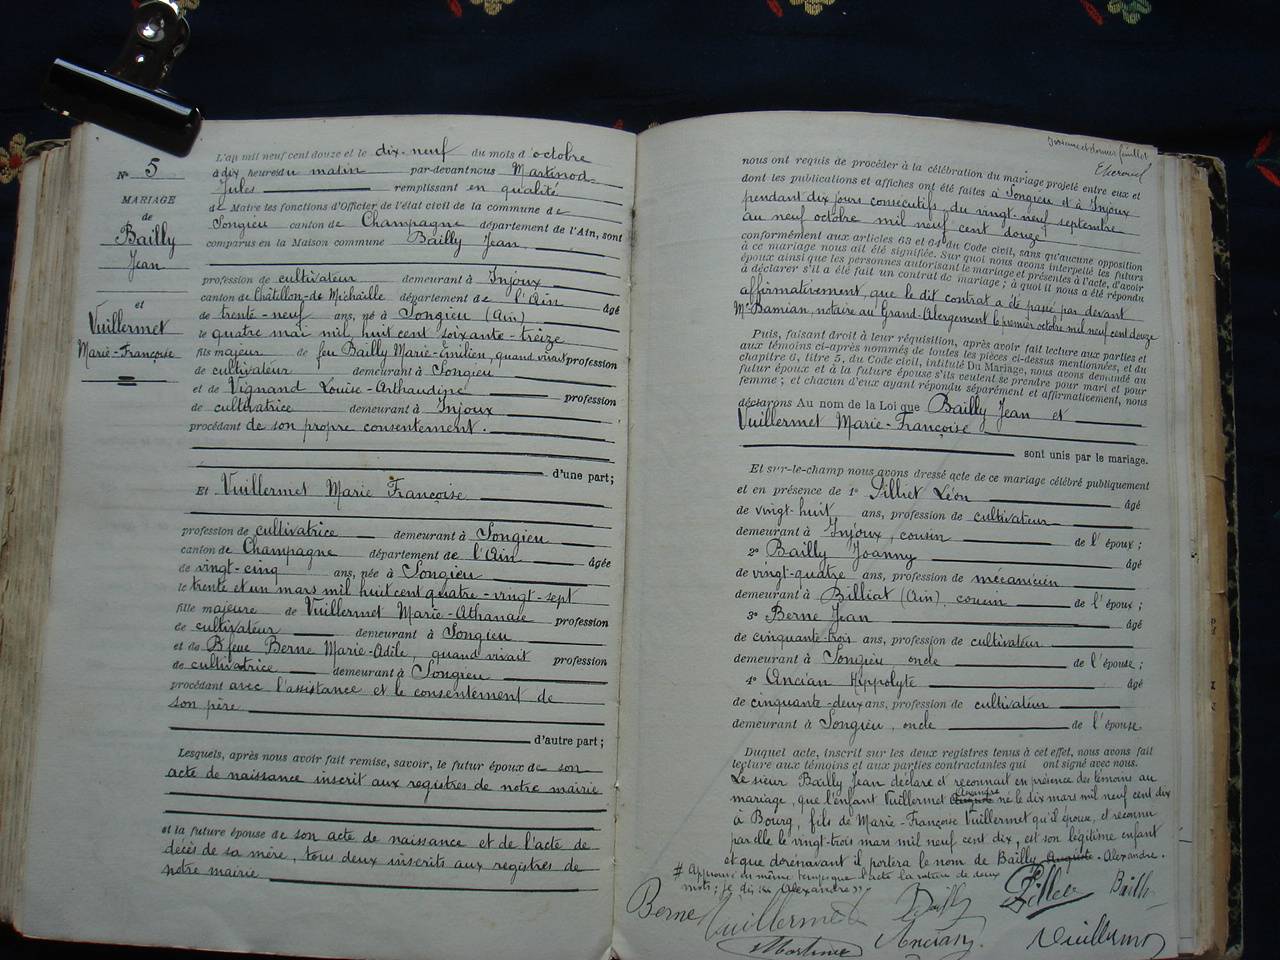 Nº 5
MARIAGE
de
Bailly
Jean
et
Vuillermet
Marie-Françoise
L'an mil neuf cent douze et le dix-neuf du mois d'octobre
à dix heures du matin par-devant nous Martinod
Jules remplissant en qualité
de Maire les fonctions d'Officier de l'état civil de la commune de
Songieu canton de Champagne département de l'Ain, sont
comparus en la Maison commune Bailly Jean
profession de cultivateur demeurant à Injoux
canton de Châtillon-de Michaille département de l'Ain âgé
de trente-neuf ans, né à Songieu (Ain)
le quatre mai mil huit cent soixante-treize
fils majeur de feu Bailly Marie-Emilien, quand vivait profession
de cultivateur demeurant à Songieu
et de Vignand Louise-Arthaudine profession
de cultivatrice demeurant à Injoux
procédant de son propre consentement.
d'une part;
Et Vuillermet Marie Françoise
profession de cultivatrice demeurant à Songieu
canton de Champagne département de l'Ain âgée
de vingt-cinq ans, née à Songieu
le trente et un mars mil huit cent quatre-vingt-sept
fille majeure de Vuillermet Marie-Athanase profession
de cultivateur demeurant à Songieu
et de feue Berne Marie-Adile, quand vivait profession
de cultivatrice demeurant à Songieu
procédant avec l'assistance et le consentement de
son père
d'autre part;
Lesquels, après nous avoir fait remise, savoir, le futur époux de son
acte de naissance inscrit aux registres de notre mairie
et la future épouse de son acte de naissance et de l'acte de
décès de sa mère, tous deux inscrits aux registres de
notre mairie
dernier feuillet
nous ont requis de procéder à la célébration du mariage projeté entre eux et
dont les publications et affiches ont été faites à Songieu et à Injoux
pendant dix jours consécutifs, du vingt-neuf septembre
au neuf octobre mil neuf cent douze
conformément aux articles 63 et 64 du Code civil, sans qu'aucune opposition
à ce mariage nous ait été signifiée. Sur quoi nous avons interpellé les futurs
époux ainsi que les personnes autorisant le mariage et présentes à l'acte, d'avoir
à déclarer s'il a été fait un contrat de mariage; à quoi il nous a été répondu
affirmativement, que le dit contrat a été passé par devant
Me Damian, notaire au Grand-Abergement le premier octobre mil neuf cent douze
Puis, faisant droit à leur réquisition, après avoir fait lecture aux parties et
aux témoins ci-après nommés de toutes les pièces ci-dessus mentionnées, et du
chapitre 6, titre 5, du Code civil, intitulé Du Mariage, nous avons demandé au
futur époux et à la future épouse s'ils veulent se prendre pour mari et pour
femme; et chacun d'eux ayant répondu séparément et affirmativement, nous
déclarons Au nom de la Loi que Bailly Jean et
Vuillermet Marie-Françoise
sont unis par le mariage.
Et sur-le-champ nous avons dressé acte de ce mariage célébré publiquement
et en présence de 1º Pilliet Léon âgé
de vingt-huit ans, profession de cultivateur
demeurant à Injoux, cousin de l'époux;
2º Bailly Joanny âgé
de vingt-quatre ans, profession de mécanicien
demeurant à Billiat (Ain), cousin de l'époux;
3º Berne Jean âgé
de cinquante-trois ans, profession de cultivateur
demeurant à Songieu, oncle de l'épouse;
4º Ancian Hippolyte âgé
de cinquante-deux ans, profession de cultivateur
demeurant à Songieu, oncle de l'épouse.
Duquel acte, inscrit sur les deux registres tenus à cet effet, nous avons fait
lecture aux témoins et aux parties contractantes qui ont signé avec nous.
Le sieur Bailly Jean déclare et reconnait en présence des témoins au
mariage, que l'enfant Vuillermet Auguste Alexandre né le dix mars mil neuf cent dix
à Bourg, fils de Marie-Françoise Vuillermet qu'il épouse, et reconnu
par elle le vingt-trois mars mil neuf cent dix, est son légitime enfant
et que dorénavant il portera le nom de Bailly Auguste-Alexandre.
# Approuvé en même temps que l'acte la rature de deux
mots; je dis "Alexandre"
Berne Vuillermet Bailly Pilliet Bailly
Martinod Ancian Vuillermet